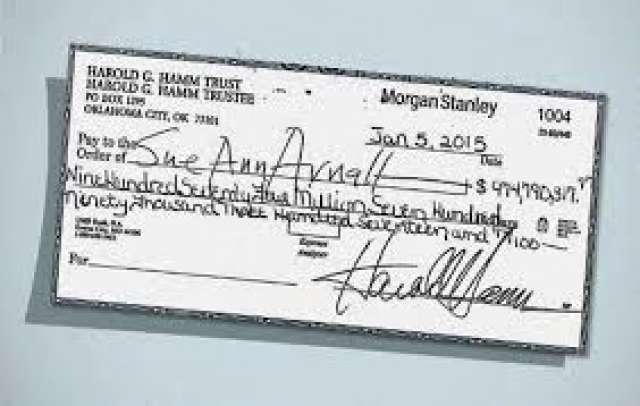 HAROLD G. HAMM TRUST
HAROLD G. HAMM TRUSTEE
PO BOX 1295
OKLAHOMA CITY, OK 73101
Morgan Stanley
1004
Jan 5, 2015
Date
Pay to the
Order of Sue Ann Arnall $ 974,790,317.
Nine Hundred Seventy Four Million Seven Hundred
Ninety Thousand Three Hundred Seventeen and /100
Expense
Analyzer
For
Harold Hamm